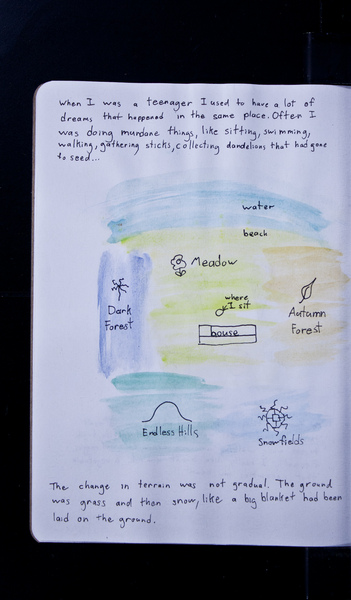 when I was a teenager I used to have a lot of
dreams that happened in the same place. Often I
was doing mundane things, like sitting, swimming,
walking, gathering sticks, collecting dandelions that had gone
to seed...
water
beach
Meadow
where
I sit
house
Dark
Forest
Autumn
Forest
Endless Hills
Snowfields
The change in terrain was not gradual. The ground
was grass and then snow, like a big blanket had been
laid on the ground.